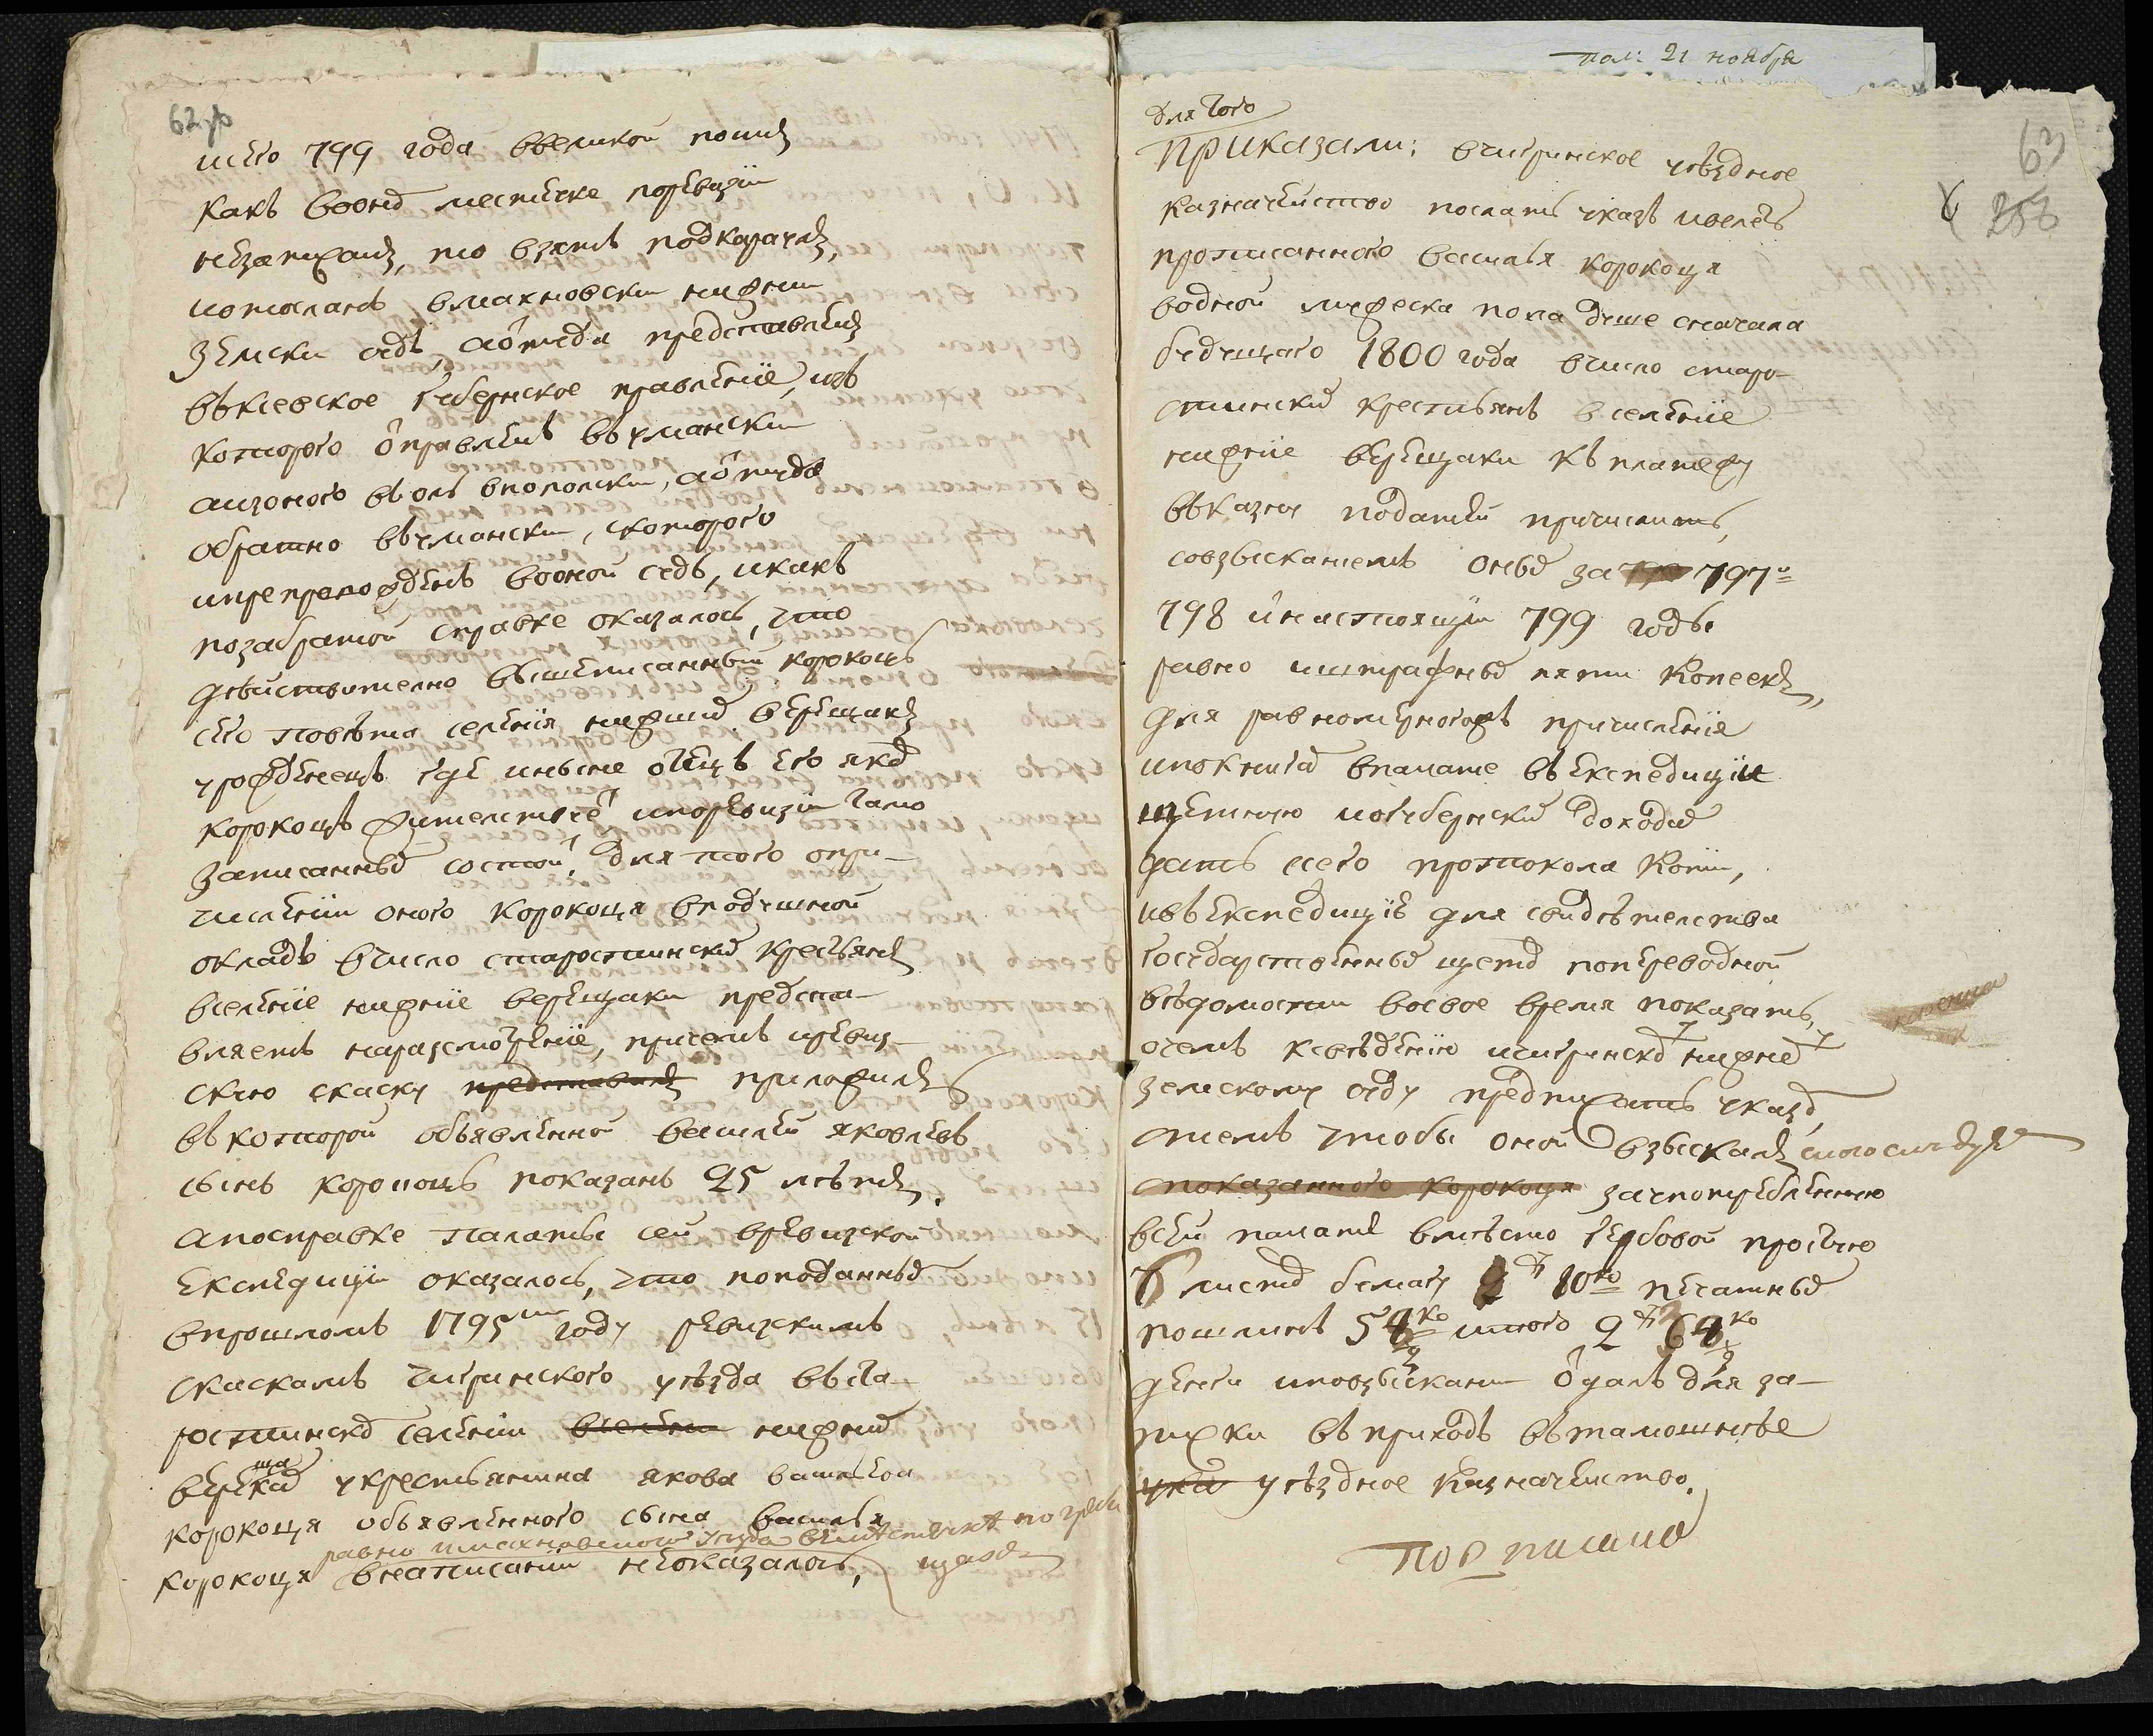 62 об
и сего 799 года в великой постъ
какъ в ономъ местечке по ревизіи
незаписанъ, то взятъ подкараулъ,
и отосланъ в махновски нижни
земски судъ, а отсуда представленъ
въ киевское губернское правление, изъ
которого отправленъ въ умански
а изоного въ оль вио полски, а оттуда
обратно въ умански, с которого
и препровожденъ в оной судъ, и какъ
по забратой справке оказалось, что
действително вышеписанный корокоць
сего повѣта селения нижнихъ верещакъ
урожденецъ где и ныне отецъ его яковъ
корокоць жителствуетъ и по ревизіи тамо
записаннымъ состоитъ, для того о при-
числении оного корокоця в подушной
окладъ в число старостинскихъ крестьянъ
в селение нижние верещаки предста-
вляетъ на разсмотрение, причемъ и ревиз-
скую скаску представилъ приложилъ
въ которой объявленной василей яковлевъ
сынъ корокоць показанъ 25 лѣтъ.
а по справке палаты сей в ревизской
Експедиции оказалось, что по поданнымъ
в прошломъ 1795мъ году ревизскимъ
скаскамъ чигринского уѣзда въ ста-
ростинскомъ селении в селении нижнихъ
верещакахъ у крестьянина якова василева
корокоця объявленного сына василья
равно и махновского уезда в местечке по греби
щахъ
корокоця в неаписании неоказалось,
пол: 21 ноября
63
258
для того
Приказали: в чигринское уѣздное
казначейство послать указъ и велеть
прописанного василья корокоця
в одной мужеска пола душе сначала
будущаго 1800 года в число старо-
стинскихъ крестьянъ в селение
нижние верещаки къ платежу
въ казну податей причислить,
со взысканиемъ оныхъ за 797й
798 и настоящий 799 годы
равно и штрафныхъ пяти копеекъ,
для равномерного жъ причисления
и по книгамъ в палате въ експедиции
щетную о губернскихъ доходахъ
дать с сего протокола копии,
и въ експедицие для свидетелства
государственныхъ щетовъ по переводной
вѣдомости в свое время показать,
о чемъ к сведению и чигринскому нижнему
земскому суду предписать указомъ
с темъ чтобы оной взыскалъ с кого следуетъ
с показанного корокоця за употребленную
в сей палате вместо гербовой простую
6 листовъ бумагу 2 р 10 ко печатныхъ
пошлинъ 54 ко итого 2 р 64 ко
денги и по взыскании отдалъ для за-
писки въ приходъ въ тамошнее
ука уѣздное казначейство.
Подписано